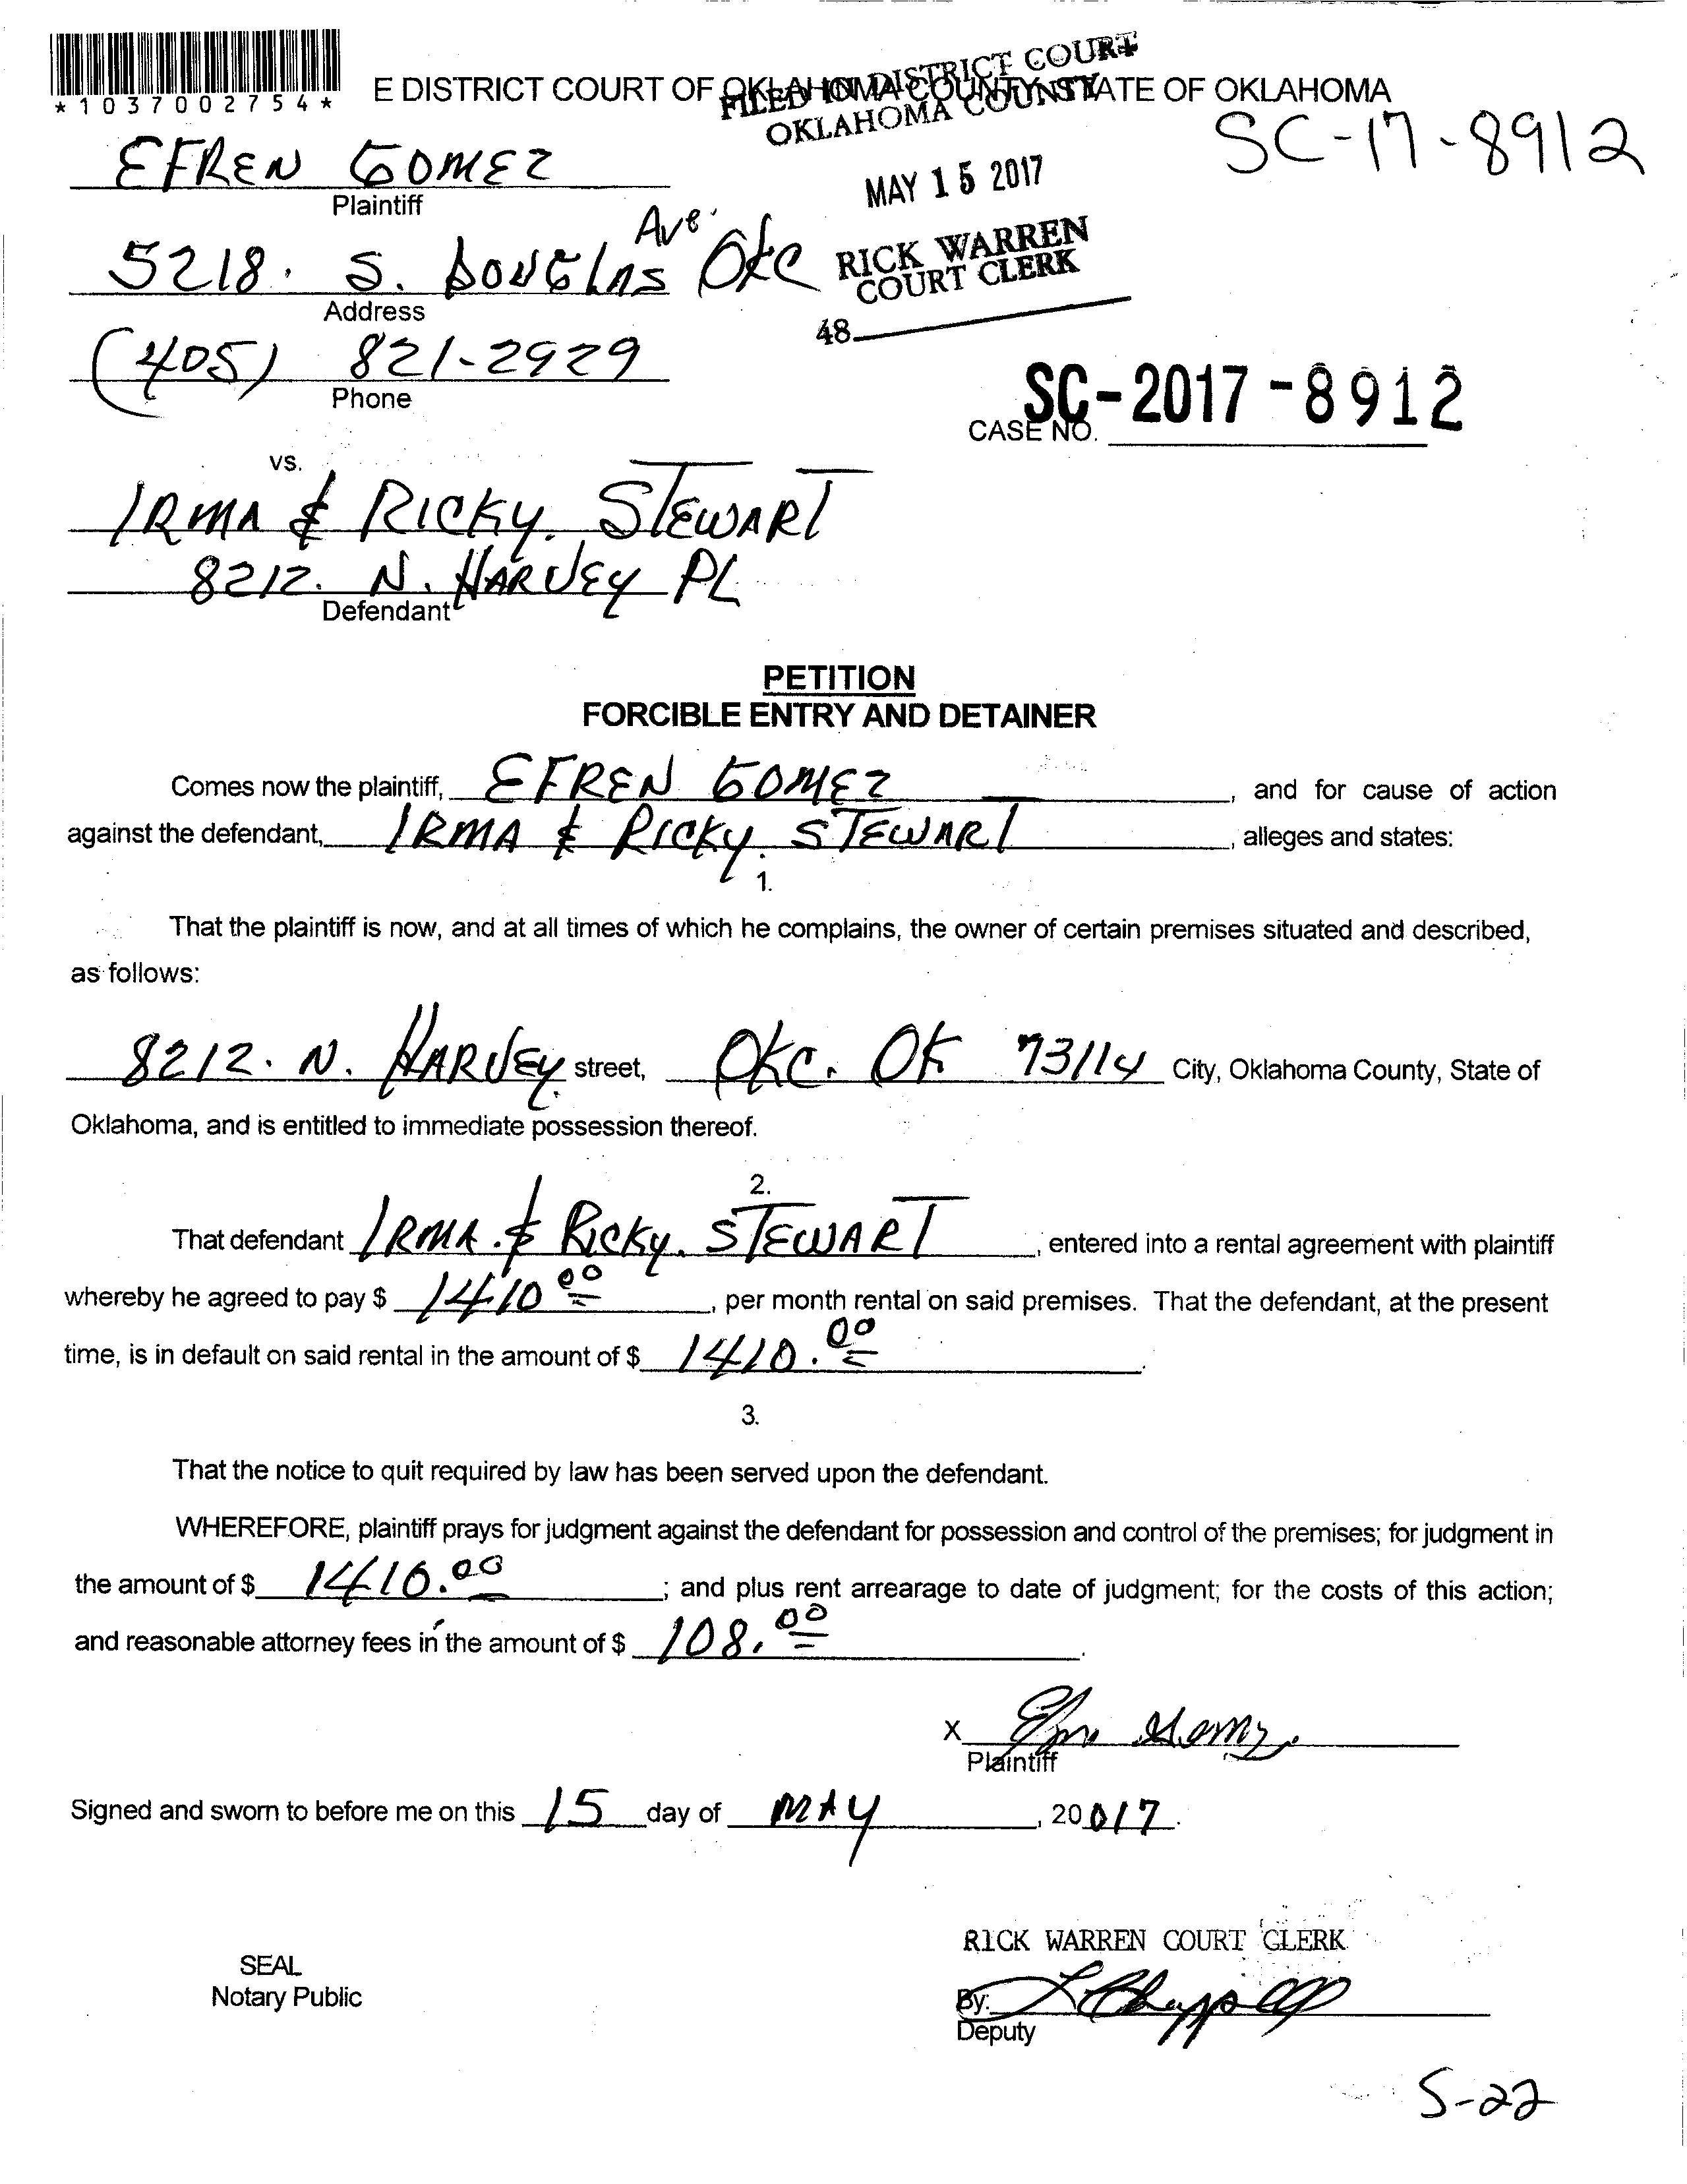 *1037002754*
E DISTRICT COURT OF OKLAHOMA COUNTY STATE OF OKLAHOMA
FILED IN DISTRICT COURT
OKLAHOMA COUNTY
SC-17-8912
MAY 15 2017
RICK WARREN
COURT CLERK
48
EFREN GOMEZ
Plaintiff
5218. S. DOUGLAS Ave. OKC
Address
(405) 821-2929
Phone
SC-2017-8912
CASE NO.
vs.
IRMA & RICKY. STEWART
8212. N. HARVEY PL
Defendant
PETITION
FORCIBLE ENTRY AND DETAINER
Comes now the plaintiff, EFREN GOMEZ, and for cause of action
against the defendant, IRMA & RICKY. STEWART, alleges and states:
1.
That the plaintiff is now, and at all times of which he complains, the owner of certain premises situated and described,
as follows:
8212. N. HARVEY. street, OKC. OK 73114 City, Oklahoma County, State of
Oklahoma, and is entitled to immediate possession thereof.
2.
That defendant IRMA. & RICKY. STEWART, entered into a rental agreement with plaintiff
whereby he agreed to pay $ 1410 00, per month rental on said premises. That the defendant, at the present
time, is in default on said rental in the amount of $ 1410.00.
3.
That the notice to quit required by law has been served upon the defendant.
WHEREFORE, plaintiff prays for judgment against the defendant for possession and control of the premises; for judgment in
the amount of $ 1410.00; and plus rent arrearage to date of judgment; for the costs of this action;
and reasonable attorney fees in the amount of $ 108.00.
X
Plaintiff
Signed and sworn to before me on this 15 day of MAY, 20 017.
RICK WARREN COURT CLERK
SEAL
Notary Public
By:
Deputy
5-22